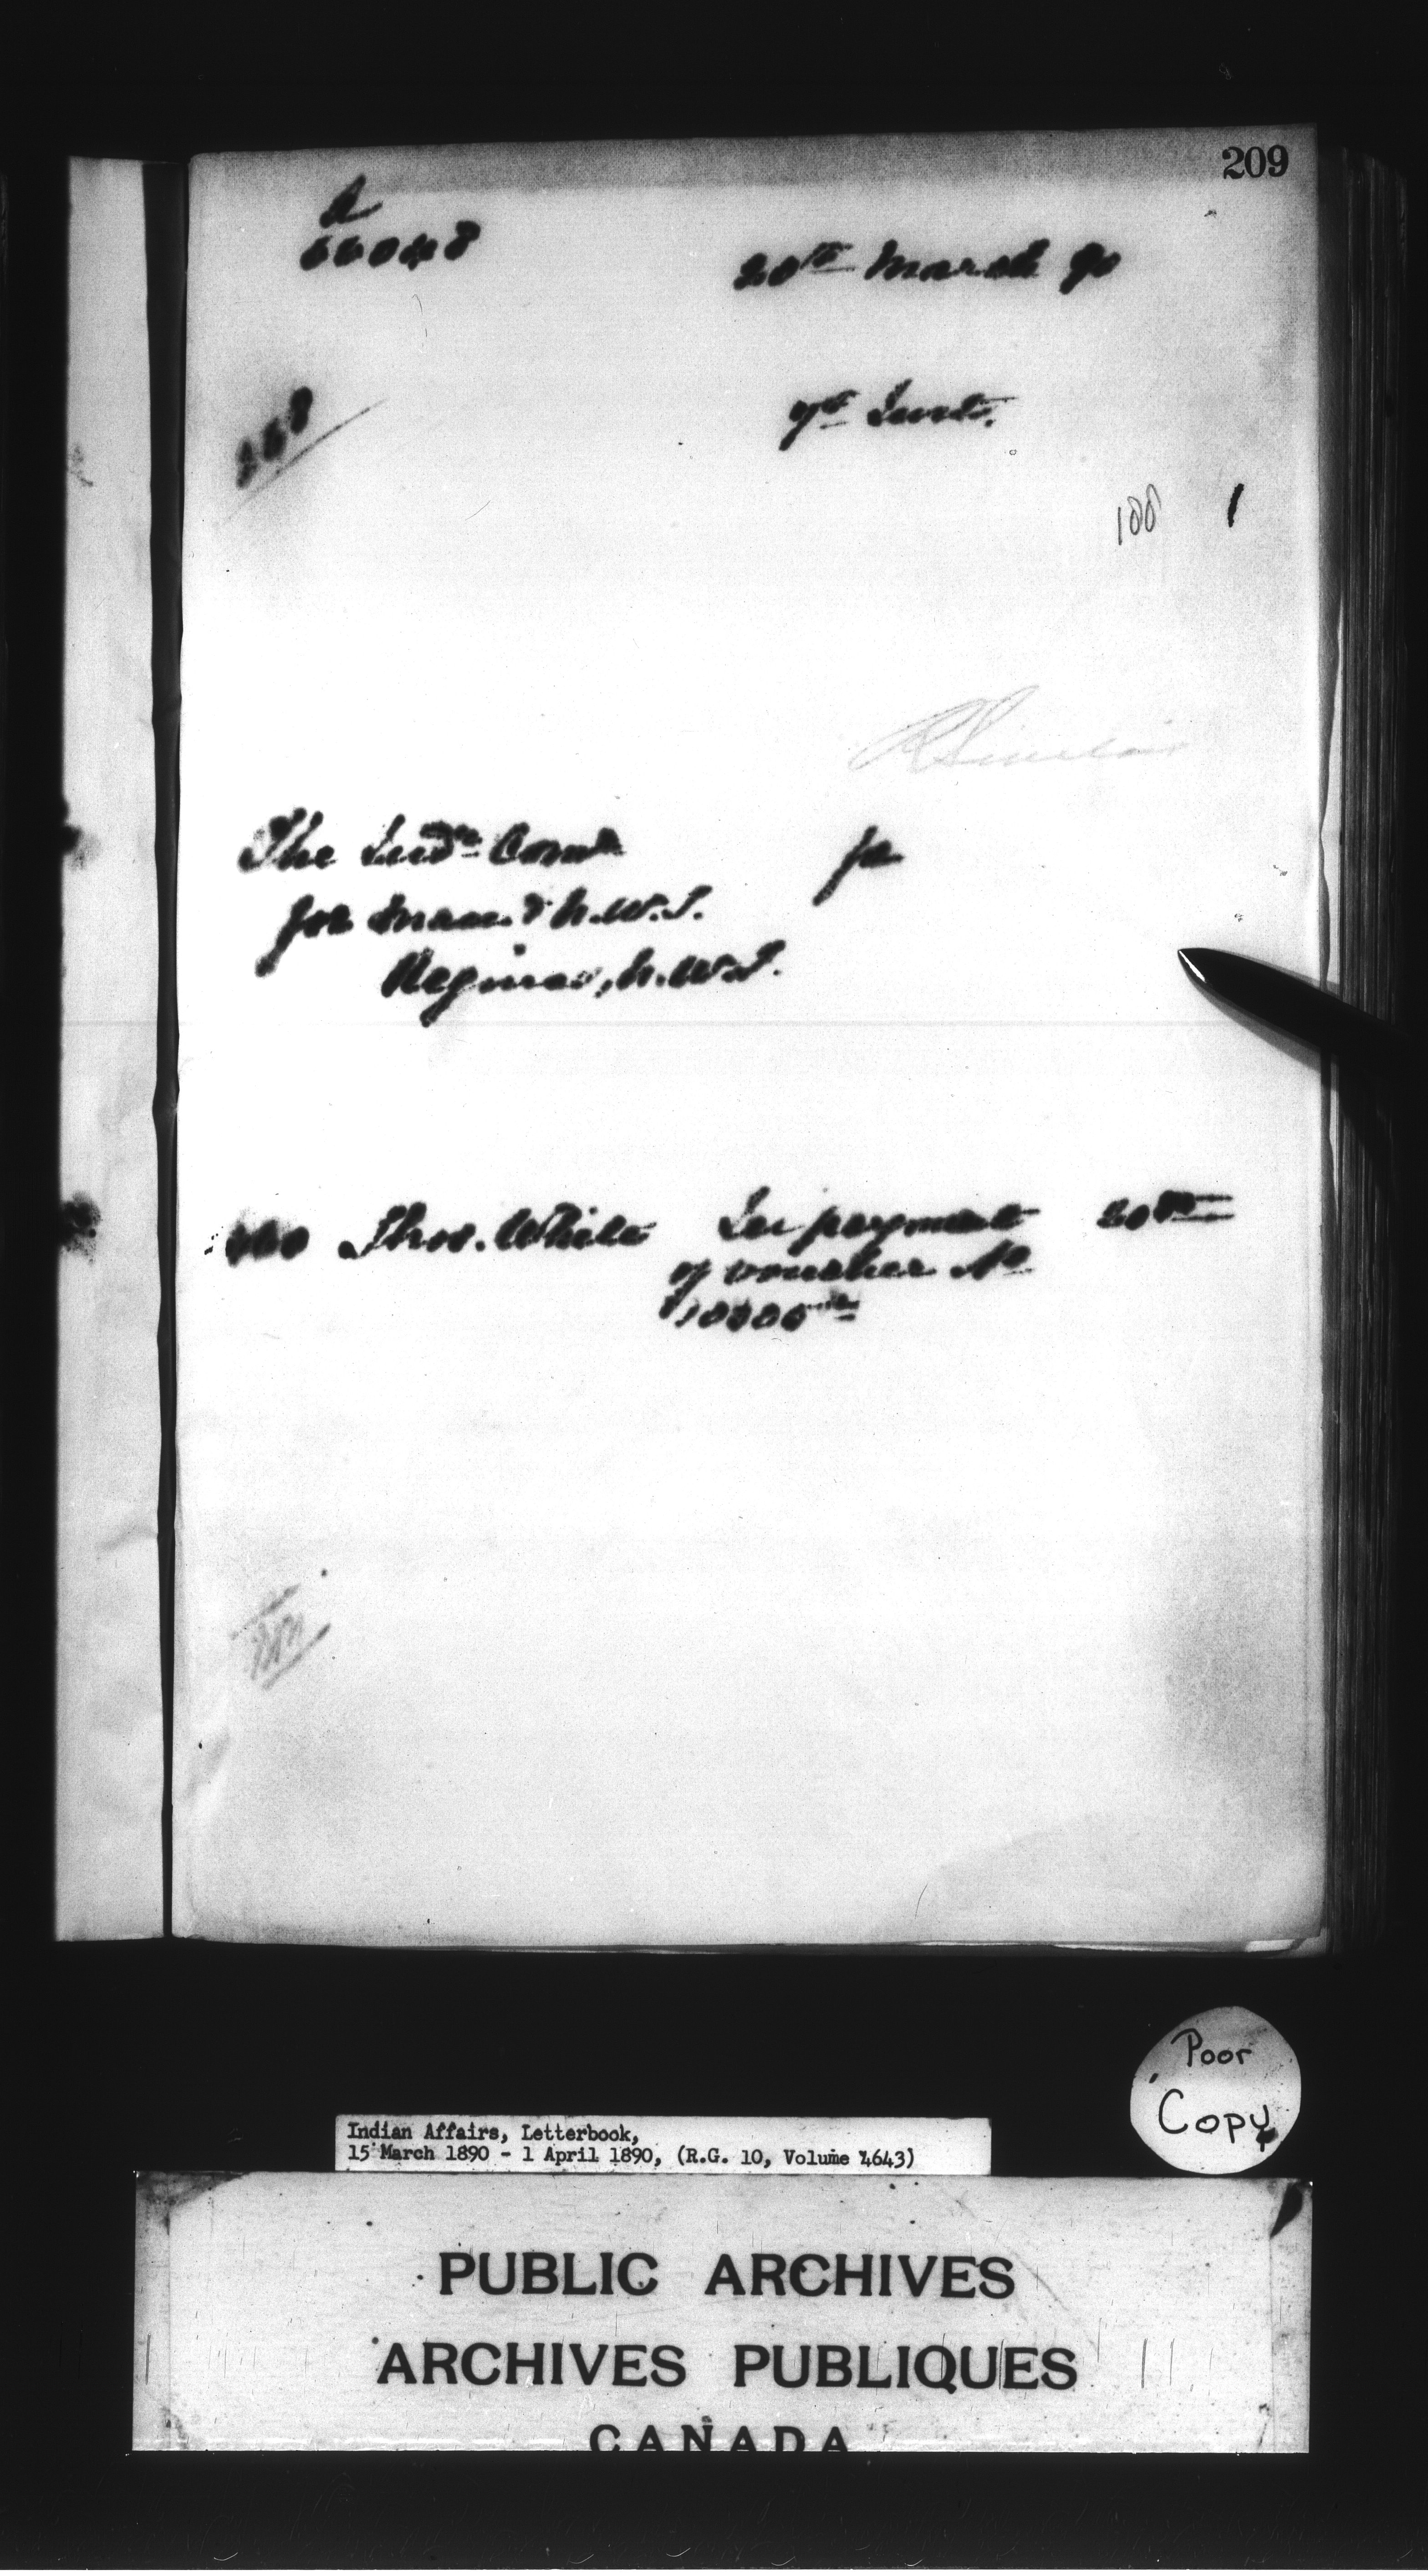 209
20th March 90
7th Inst.
100
RSinclair
The Indn Comr
for
for Man. & N.W.T.
Regina, N.W.T.
Thos. White In payment 20 00
of voucher No
Poor
Copy
Indian Affairs, Letterbook,
15 March 1890 - 1 April 1890, (R.G. 10, Volume 4643)
PUBLIC ARCHIVES
ARCHIVES PUBLIQUES
CANADA